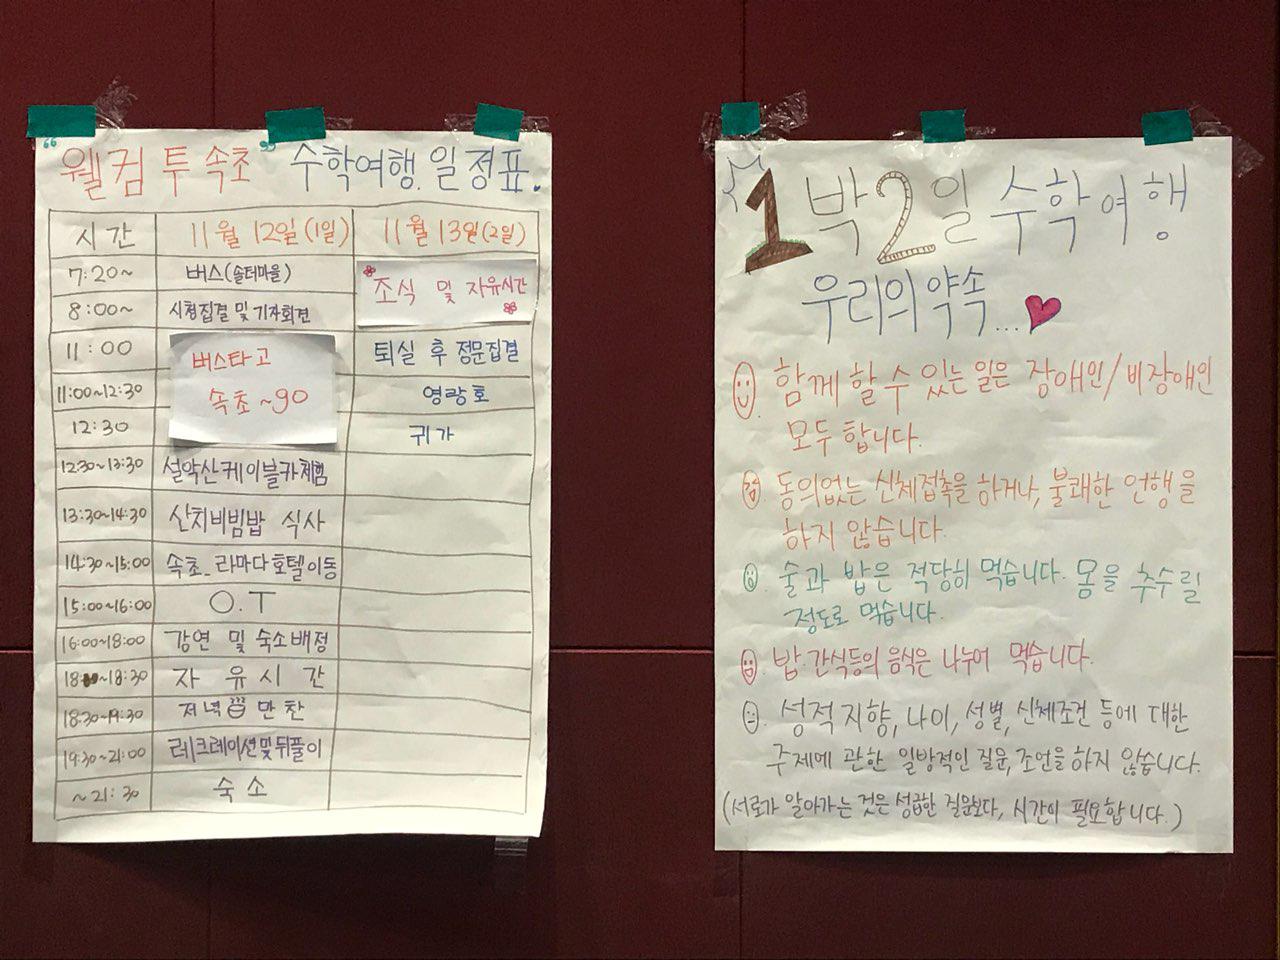 "웰컴 투 속초" 수학여행 일정표.
시간 11월 12일(1일) 11월 13일(2일)
7:20~ 버스(솔터마을) 조식 및 자유시간
8:00~ 시청집결 및 기자회견
11:00 버스타고 퇴실 후 정문집결
11:00~12:30 속초~go 영랑호
12:30 귀가
12:30~13:30 설악산케이블카체험
13:30~14:30 산치비빔밥 식사
14:30~15:00 속초_라마다호텔이동
15:00~16:00 O.T
16:00~18:00 강연 및 숙소배정
~18:30 자유시간
18:30~19:30 저녁 만찬
19:30~21:00 레크레이션및뒤풀이
~21:30 숙소
1박2일 수학여행
우리의 약속...
함께 할 수 있는 일은 장애인/비장애인
모두 합니다.
동의없는 신체접촉을 하거나, 불쾌한 언행을
하지 않습니다.
술과 밥은 적당히 먹습니다. 몸을 추수릴
정도로 먹습니다.
밥·간식등의 음식은 나누어 먹습니다.
성적지향, 나이, 성별, 신체조건 등에 대한
주제에 관한 일방적인 질문, 조언을 하지 않습니다.
(서로가 알아가는 것은 성급한 질문보다, 시간이 필요합니다.)